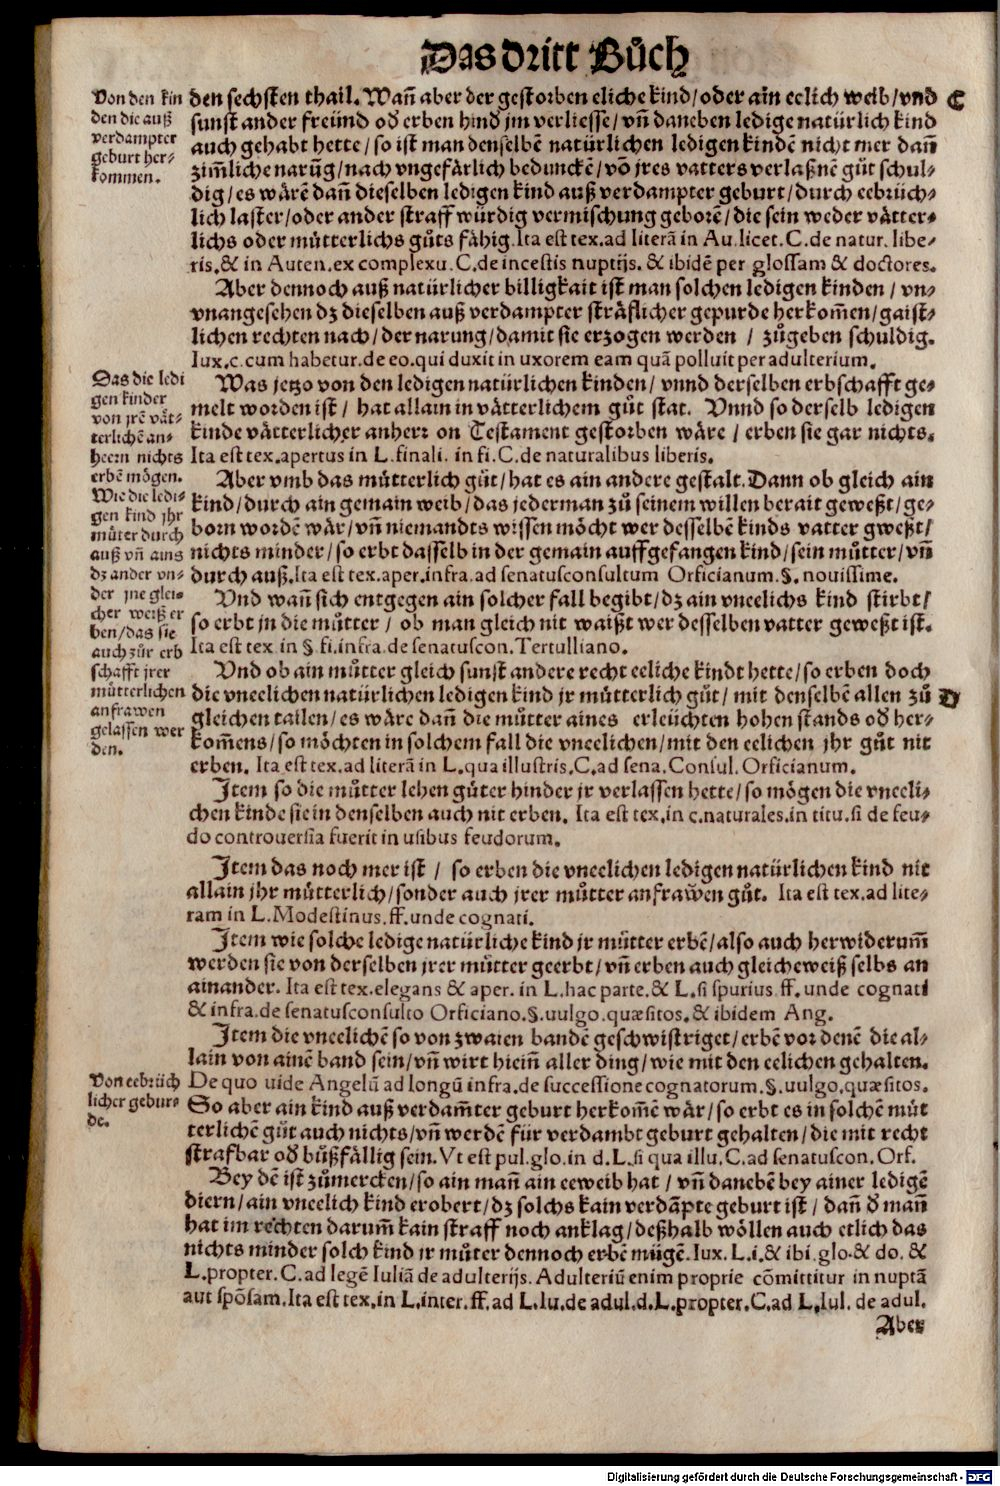 Das dritt Bůch
Von den kin
den die auß
verdampter
geburt her⸗
kommen.
den sechsten thail. Wañ aber der gestorben eliche kind/oder ain eelich weib/vnd
sunst ander freünd oď erben hind jm verliesse/vñ daneben ledige natürlich kind
auch gehabt hette/so ist man denselbē natürlichen ledigen kindē nicht mer dañ
zim̃liche narũg/nach vngefärlich beduncke᷑/võ jres vatters verlaßnē gůt schul⸗
dig/es wärē dañ dieselben ledigen kind auß verdampter geburt/durch eebrüch⸗
lich laster/oder ander straff würdig vermischung geborē/die sein weder vätter⸗
lichs oder můtterlichs gůts fähig. Ita est tex.ad literā in Au.licet.C.de natur. libe⸗
ris.& in Auten.ex complexu.C.de incestis nuptijs. & ibidē per glossam & doctores.
Aber dennoch auß natürlicher billigkait ist man solchen ledigen kinden/vn⸗
vnangesehen dz dieselben auß verdampter sträflicher gepurde herkom̃en/gaist⸗
lichen rechten nach/der narung/damit sie erzogen werden / zůgeben schuldig.
Iux.c.cum habetur.de eo.qui duxit in uxorem eam quā polluit per adulterium.
Das die ledi
gen kinder
von jrē vät⸗
terlichē an⸗
heern nichts
erbē mögen.
Was jetzo von den ledigen natürlichen kinden/vnnd derselben erbschafft ge⸗
melt worden ist/ hat allain in vätterlichem gůt stat. Vnnd so derselb ledigen
kinde vätterlicher anherr on Testament gestorben wäre/erben sie gar nichts.
Ita est tex.apertus in L.finali. in fi.C.de naturalibus liberis.
Wie die ledi⸗
gen kind jhr
můter durch
auß vñ ains
dz ander vn⸗
der jne glei⸗
cher weiß er
ben/das sie
auch zůr erb
schafft jrer
můtterlichen
anfrawen
gelassen wer
den.
Aber vmb das můtterlich gůt/hat es ain andere gestalt. Dann ob gleich ain
kind/durch ain gemain weib/das jederman zů seinem willen berait geweßt/ge⸗
born wordē wär/vñ niemandts wissen möcht wer desselbē kinds vatter gweßt/
nichts minder/so erbt dasselb in der gemain auffgefangen kind/sein můtter/vñ
durch auß. Ita est tex.aper.infra.ad senatusconsultum Orficianum.§.nouissime.
Vnd wañ sich entgegen ain solcher fall begibt/dz ain vneelichs kind stirbt/
so erbt jn die můtter/ ob man gleich nit waißt wer desselben vatter geweßt ist.
Ita est tex in §.fi.infra.de senatuscon.Tertulliano.
Vnd ob ain můtter gleich sunst andere recht eeliche kindt hette/so erben doch
die vneelichen natürlichen ledigen kind jr můtterlich gůt/mit denselbē allen zů
gleichen tailen/es wäre dañ die můtter aines erleüchten hohen stands oď her⸗
kom̃ens/so möchten in solchem fall die vneelichen/mit den eelichen jhr gůt nit
erben. Ita est tex.ad literā in L.qua illustris.C.ad sena.Consul.Orficianum.
C
D
Item so die můtter lehen gůter hinder jr verlassen hette/so mögen die vneeli⸗
chen kinde sie in denselben auch nit erben. Ita est tex.in c.naturales.in titu.si de feu⸗
do controuersia fuerit in usibus feudorum.
Item das noch mer ist / so erben die vneelichen ledigen natürlichen kind nit
allain jhr můtterlich/sonder auch jrer můtter anfraw̃en gůt. Ita est tex.ad lite⸗
ram in L.Modestinus.ff.unde cognati.
Item wie solche ledige natürliche kind jr můtter erbē/also auch herwiderum̃
werden sie von derselben jrer můtter geerbt/vñ erben auch gleicheweiß selbs an
ainander. Ita est tex.elegans & aper. in L.hac parte.& L.si spurius ff. unde cognati
& infra.de senatusconsulto Orficiano.§.uulgo.quæsitos.& ibidem Ang.
Item die vneelichē so von zwaien bandē geschwistriget/erbē vor denē die al⸗
lain von ainē band sein/vñ wirt hieiñ aller ding/wie mit den eelichen gehalten.
De quo uide Angelū ad longū infra.de successione cognatorum.§.uulgo.quæsitos.
Von eebrüch
licher gebur⸗
de.
So aber ain kind auß verdam̃ter geburt herkom̃ē wär/so erbt es in solchē můt
terlichē gůt auch nichts/vñ werdē für verdambt geburt gehalten/die mit recht
strafbar oď bůßfällig sein. Vt est pul.glo.in d.L.si qua illu.C.ad senatuscon.Orf.
Bey dē ist zůmercken/so ain mañ ain eeweib hat/vñ danebē bey ainer ledigē
diern/ain vneelich kind erobert/dz solchs kain verdãpte geburt ist/ dañ ď mañ
hat im rechten darum̃ kain straff noch anklag/deßhalb wöllen auch etlich das
nichts minder solch kind jr můter dennoch erbē mügē. Iux. L.i.& ibi.glo.& do. &
L.propter.C.ad legē Iuliā de adulterijs. Adulteriū enim proprie cōmittitur in nuptā
aut spōsam. Ita est tex.in L.inter.ff.ad L.Iu.de adul.d.L.propter.C.ad L.Iul. de adul.
Aber
Digitalisierung gefördert durch die Deutsche Forschungsgemeinschaft - DFG